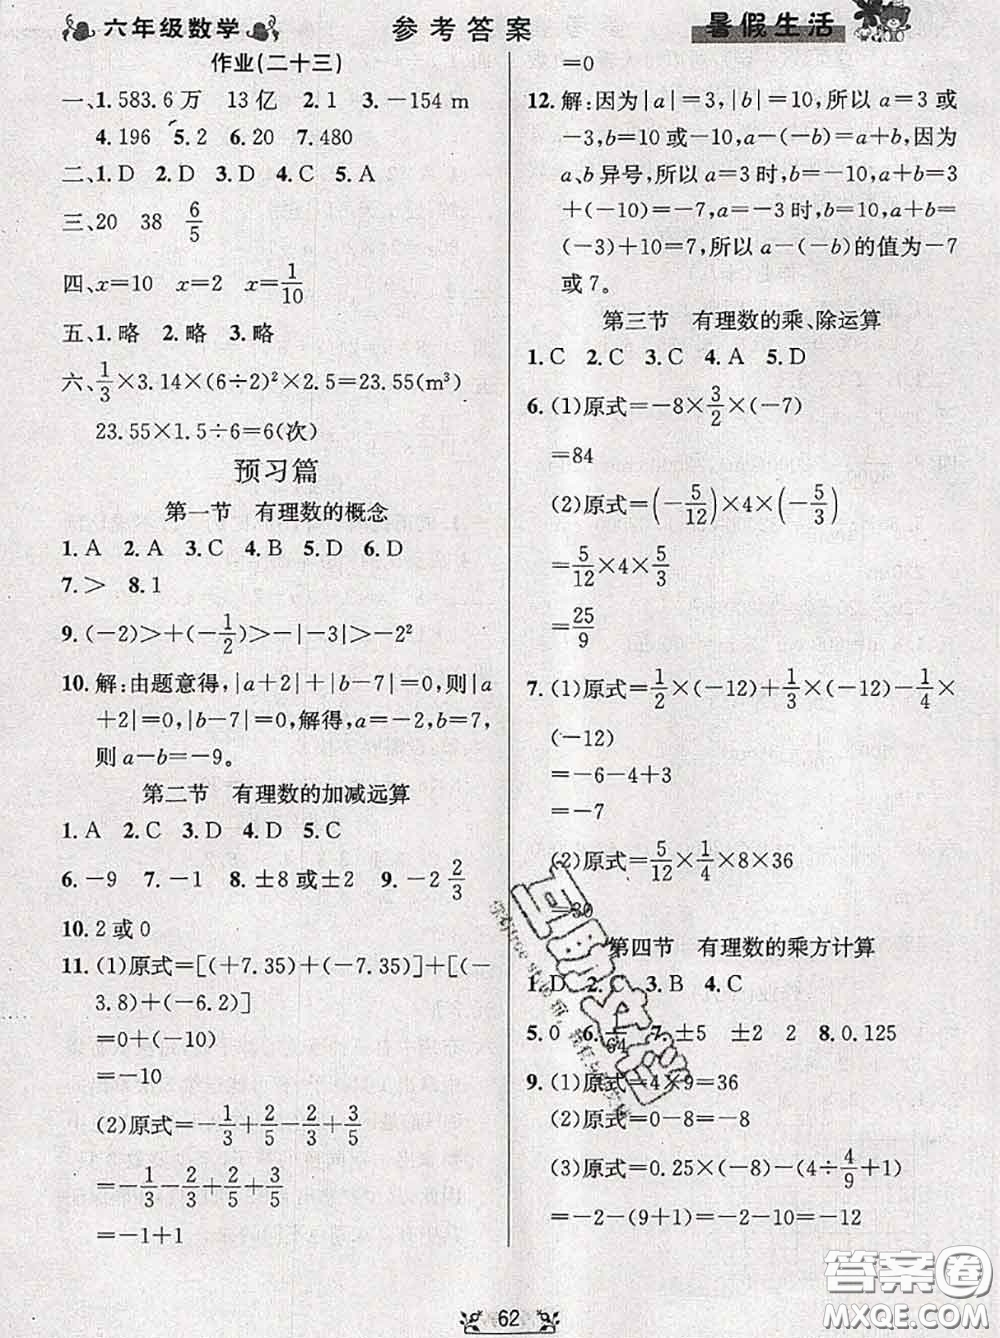 六年级数学
参考答案
暑假生活
作业(二十三)
一、1.583.6万 13亿 2.1 3.－154 m
4.196 5.2 6.20 7.480
二、1.D 2.D 3.D 4.C 5.A
三、20 38 6/5
四、x＝10 x＝2 x＝1/10
五、1.略 2.略 3.略
六、1/3×3.14×(6÷2)²×2.5＝23.55(m³)
23.55×1.5÷6＝6(次)
预习篇
第一节 有理数的概念
1.A 2.A 3.C 4.B 5.D 6.D
7.＞ 8.1
9.(－2)＞＋(－1/2)＞－|－3|＞－2²
10.解:由题意得,|a＋2|＋|b－7|＝0,则|a
＋2|＝0,|b－7|＝0,解得,a＝－2,b＝7,
则a－b＝－9。
第二节 有理数的加减远算
1.A 2.C 3.D 4.D 5.C
6.－9 7.－1 8.±8或±2 9.－2 2/3
10.2或0
11.(1)原式＝[(＋7.35)＋(－7.35)]＋[(－
3.8)＋(－6.2)]
＝0＋(－10)
＝－10
(2)原式＝－1/3＋2/5－2/3＋3/5
＝－1/3－2/3＋2/5＋3/5
＝－1＋1
＝0
12.解:因为|a|＝3,|b|＝10,所以a＝3或
－3,b＝10或－10,a－(－b)＝a＋b,因为
a、b异号,所以a＝3时,b＝10,a＋b＝3
＋(－10)＝－7,a＝－3时,b＝10,a＋b＝
(－3)＋10＝7,所以a－(－b)的值为－7
或7。
第三节 有理数的乘、除运算
1.C 2.C 3.C 4.A 5.D
6.(1)原式＝－8×3/2×(－7)
＝84
(2)原式＝(－5/12)×4×(－5/3)
＝5/12×4×5/3
＝25/9
7.(1)原式＝1/2×(－12)＋1/3×(－12)－1/4×
(－12)
＝－6－4＋3
＝－7
(2)原式＝5/12×1/4×8×36
＝30
第四节 有理数的乘方计算
1.D 2.C 3.B 4.C
5.0 6. 64 7.±5 ±2 2 8.0.125
9.(1)原式＝4×9＝36
(2)原式＝0－8＝－8
(3)原式＝0.25×(－8)－(4÷4/9＋1)
＝－2－(9＋1)＝－2－10＝－12
62
答案圈
MXQE.COM